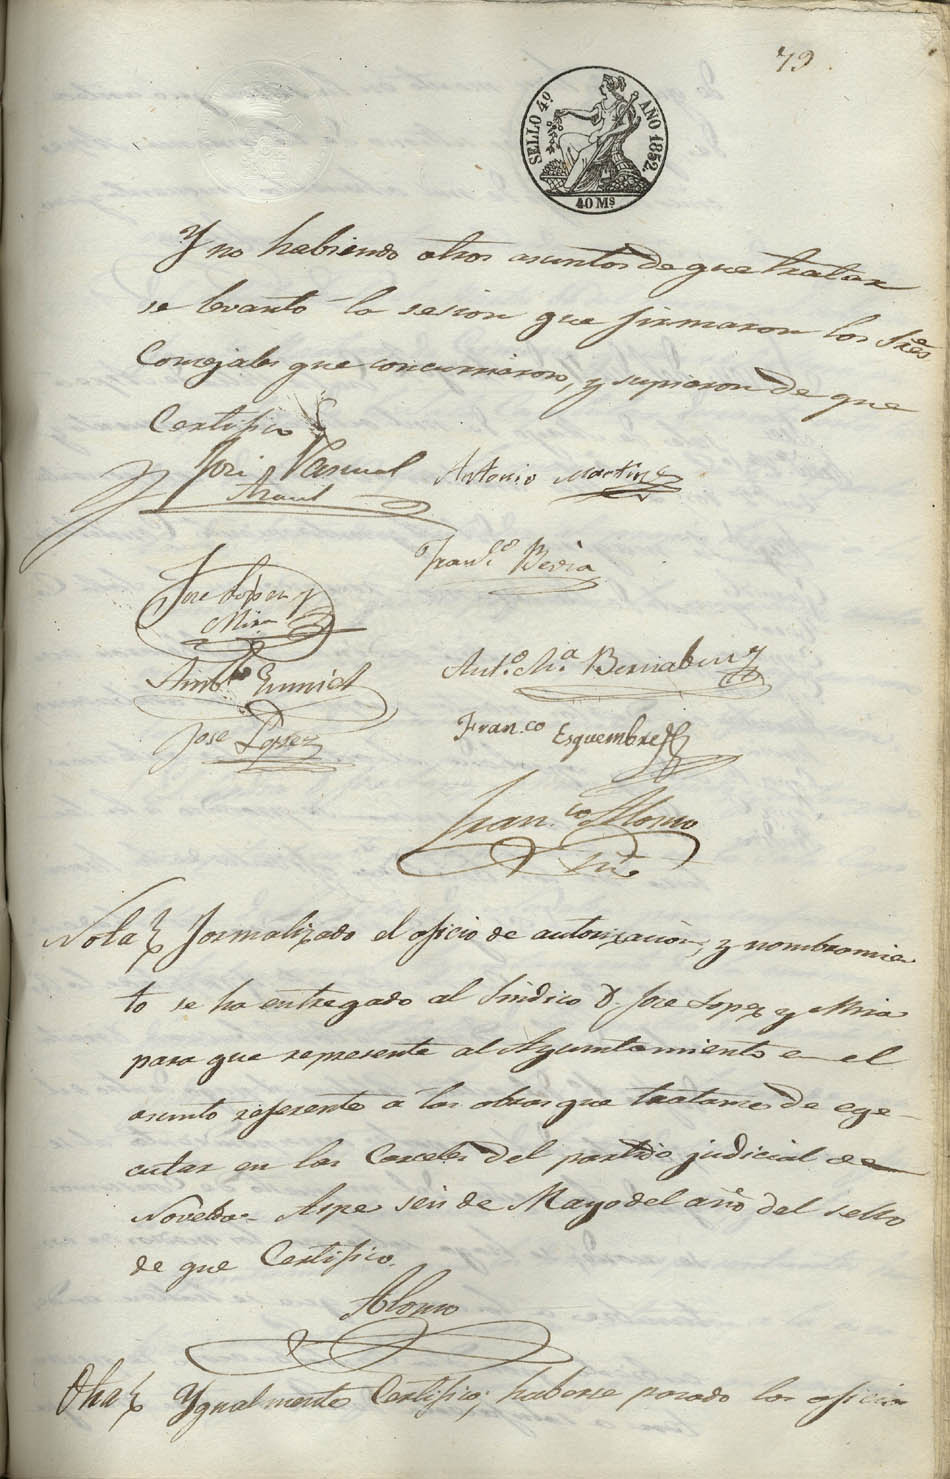 79
SELLO 4º AÑO 1852.
40 Ms
Y no habiendo otros asuntos de que tratar
se levantó la sesion que firmaron los Sres
Concejales que concurrieron, y supieron de que
Certifico
José Pascual
Antonio Martinez
Franco
José Lopez y
Mira
Anto Ma Bernabeu
José Lopez
Fran.co Esquembre
Fran.co Alonso
Srio
Nota Formalizado el oficio de autorizacion, y nombramien
to se ha entregado al Sindico D. Jose Lopez y Mira
para que represente al Ayuntamiento en el
asunto referente á las obras que tratan de ege-
cutar en las Carceles del partido judicial de
Novelda- Aspe seis de Mayo del año del sello
de que Certifico.
Alonso
Otra Ygualmente Certifico; haberse pasado los oficios